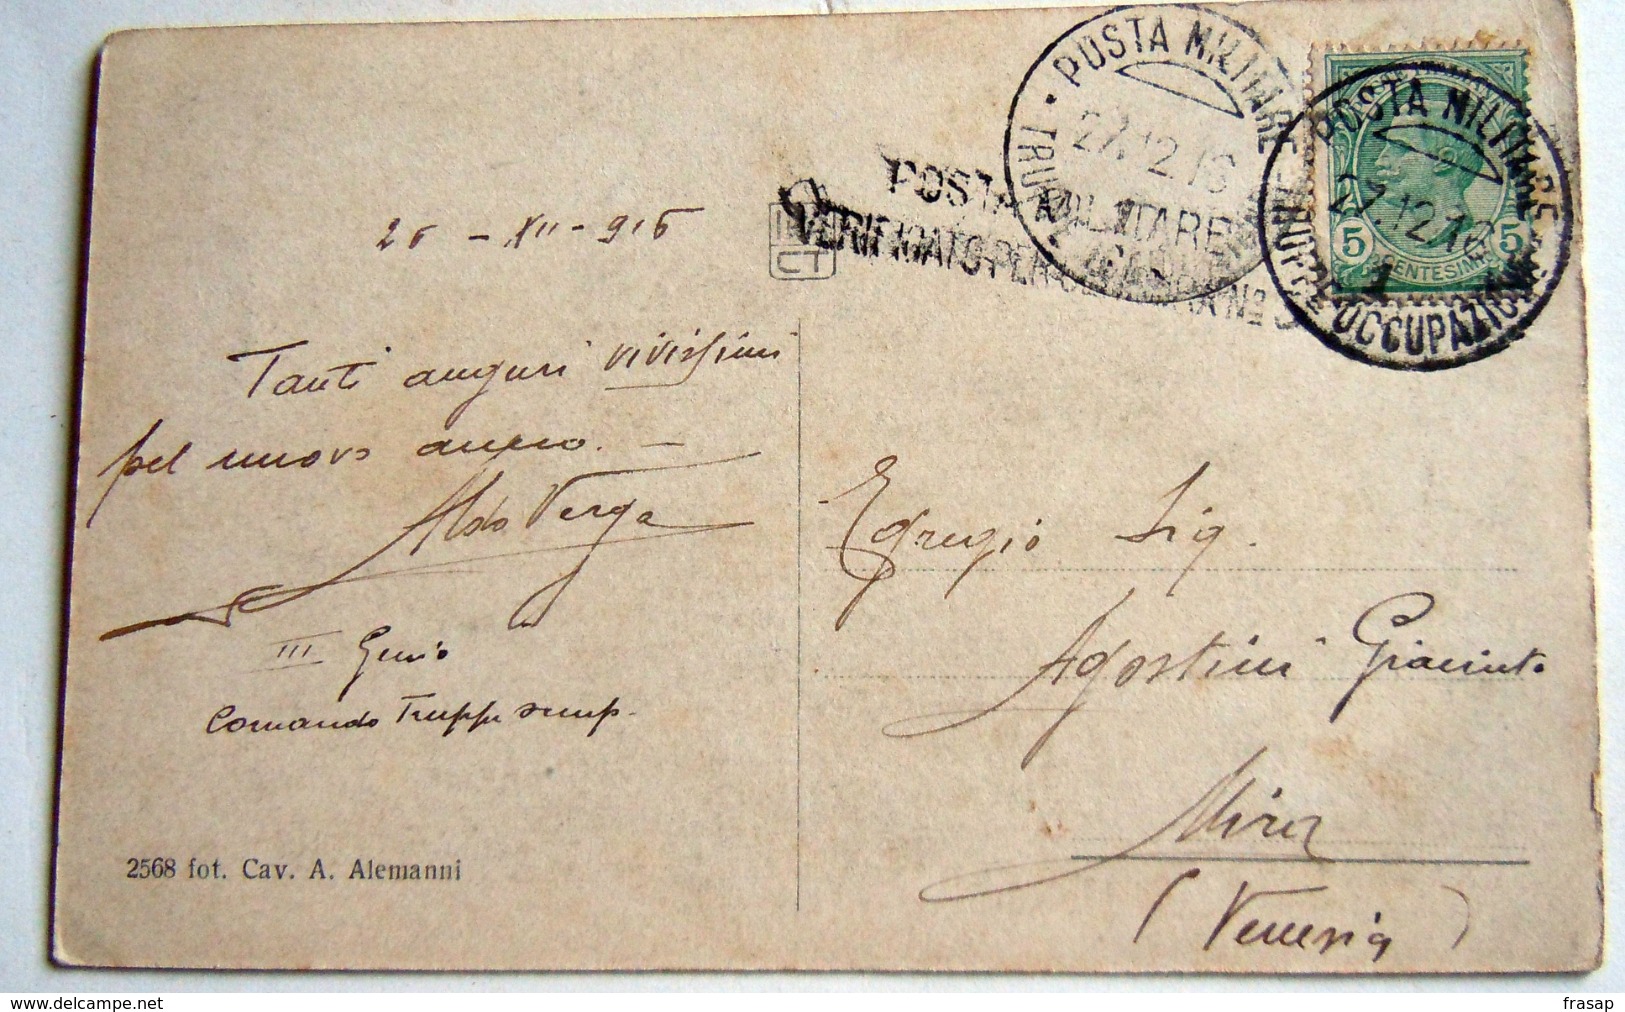 POSTA MILITARE
27.12.16
POSTA MILITARE
27.12.16
TRUPPE OCCUPAZIONE
POSTA MILITARE
VERIFICATO PER CENSURA Nº
5 5
CENTESIMI
26 - XII - 916
Tanti auguri vivissimi
pel nuovo anno. —
Aldo Verga
III Genio
Comando Truppe
Egregio Sig.
Agostini Giacinto
Mira
(Venezia)
2568 fot. Cav. A. Alemanni
frasap